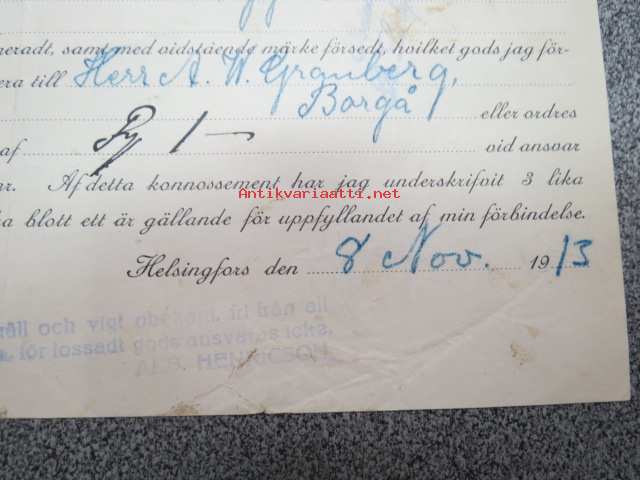 neradt, samt med vidstående märke försedt, hvilket gods jag för-
era till Herr A. W. Granberg,
Borgå eller ordres
af 1 — vid ansvar
nr. Af detta konnossement har jag underskrifvit 3 lika
Antikvariaatti.net
a blott ett är gällande för uppfyllandet af min förbindelse.
Helsingfors den 8 Nov. 1913
åll och vigt obekant, fri från all
för lossadt gods ansvaras icke.
ALB. HENRICSON